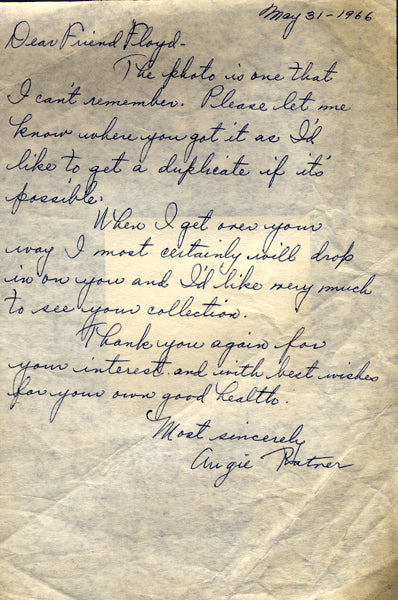 May 31-1966
Dear Friend Floyd-
The photo is one that
I can't remember. Please let me
know where you got it as I'd
like to get a duplicate if it's
possible.
When I get over your
way I most certainly will drop
in on you and I'd like very much
to see your collection.
Thank you again for
your interest and with best wishes
for your own good health.
Most sincerely
Augie Ratner